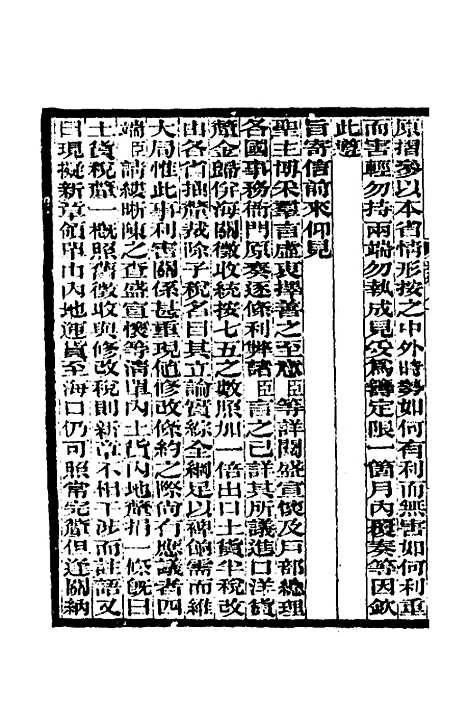 原摺參以本省情形按之中外時勢如何有利而無害如何利重
而害輕勿持兩端勿執成見妥爲籌定限一箇月內覆奏等因欽
此遵
旨寄信前來仰見
聖主博采羣言虛衷擇善之至意臣等詳閱盛宣懷及戶部總理
各國事務衙門原奏逐條利弊諸臣言之已詳其所議進口洋貨
釐金歸倂海關徵收統按七五之數照加一倍出口土貨半稅改
由各省抽釐裁除子稅名目其立論實綜全綱足以裨餉需而維
大局惟此事利害關係甚重現値修改條約之際尙有應議者四
端臣請縷晰陳之查盛宣懷等清單內土貨內地釐捐一條旣曰
土貨稅釐一槪照舊徵收與修改稅則新章不相干涉而註語又
曰現擬新章領單由內地運貨至海口仍可照常完釐但近關納